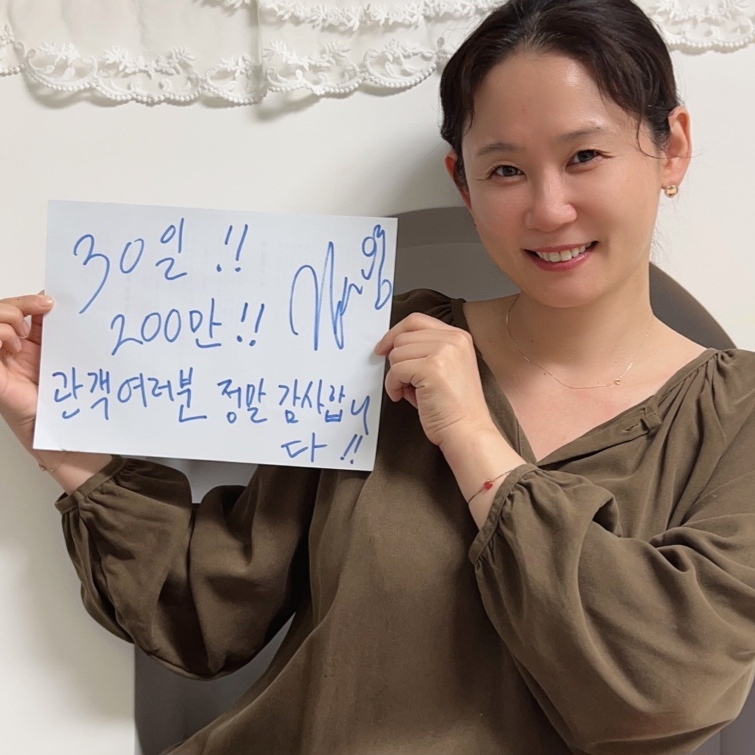 30일 !!
200만 !!
관객여러분 정말 감사합니
다 !!